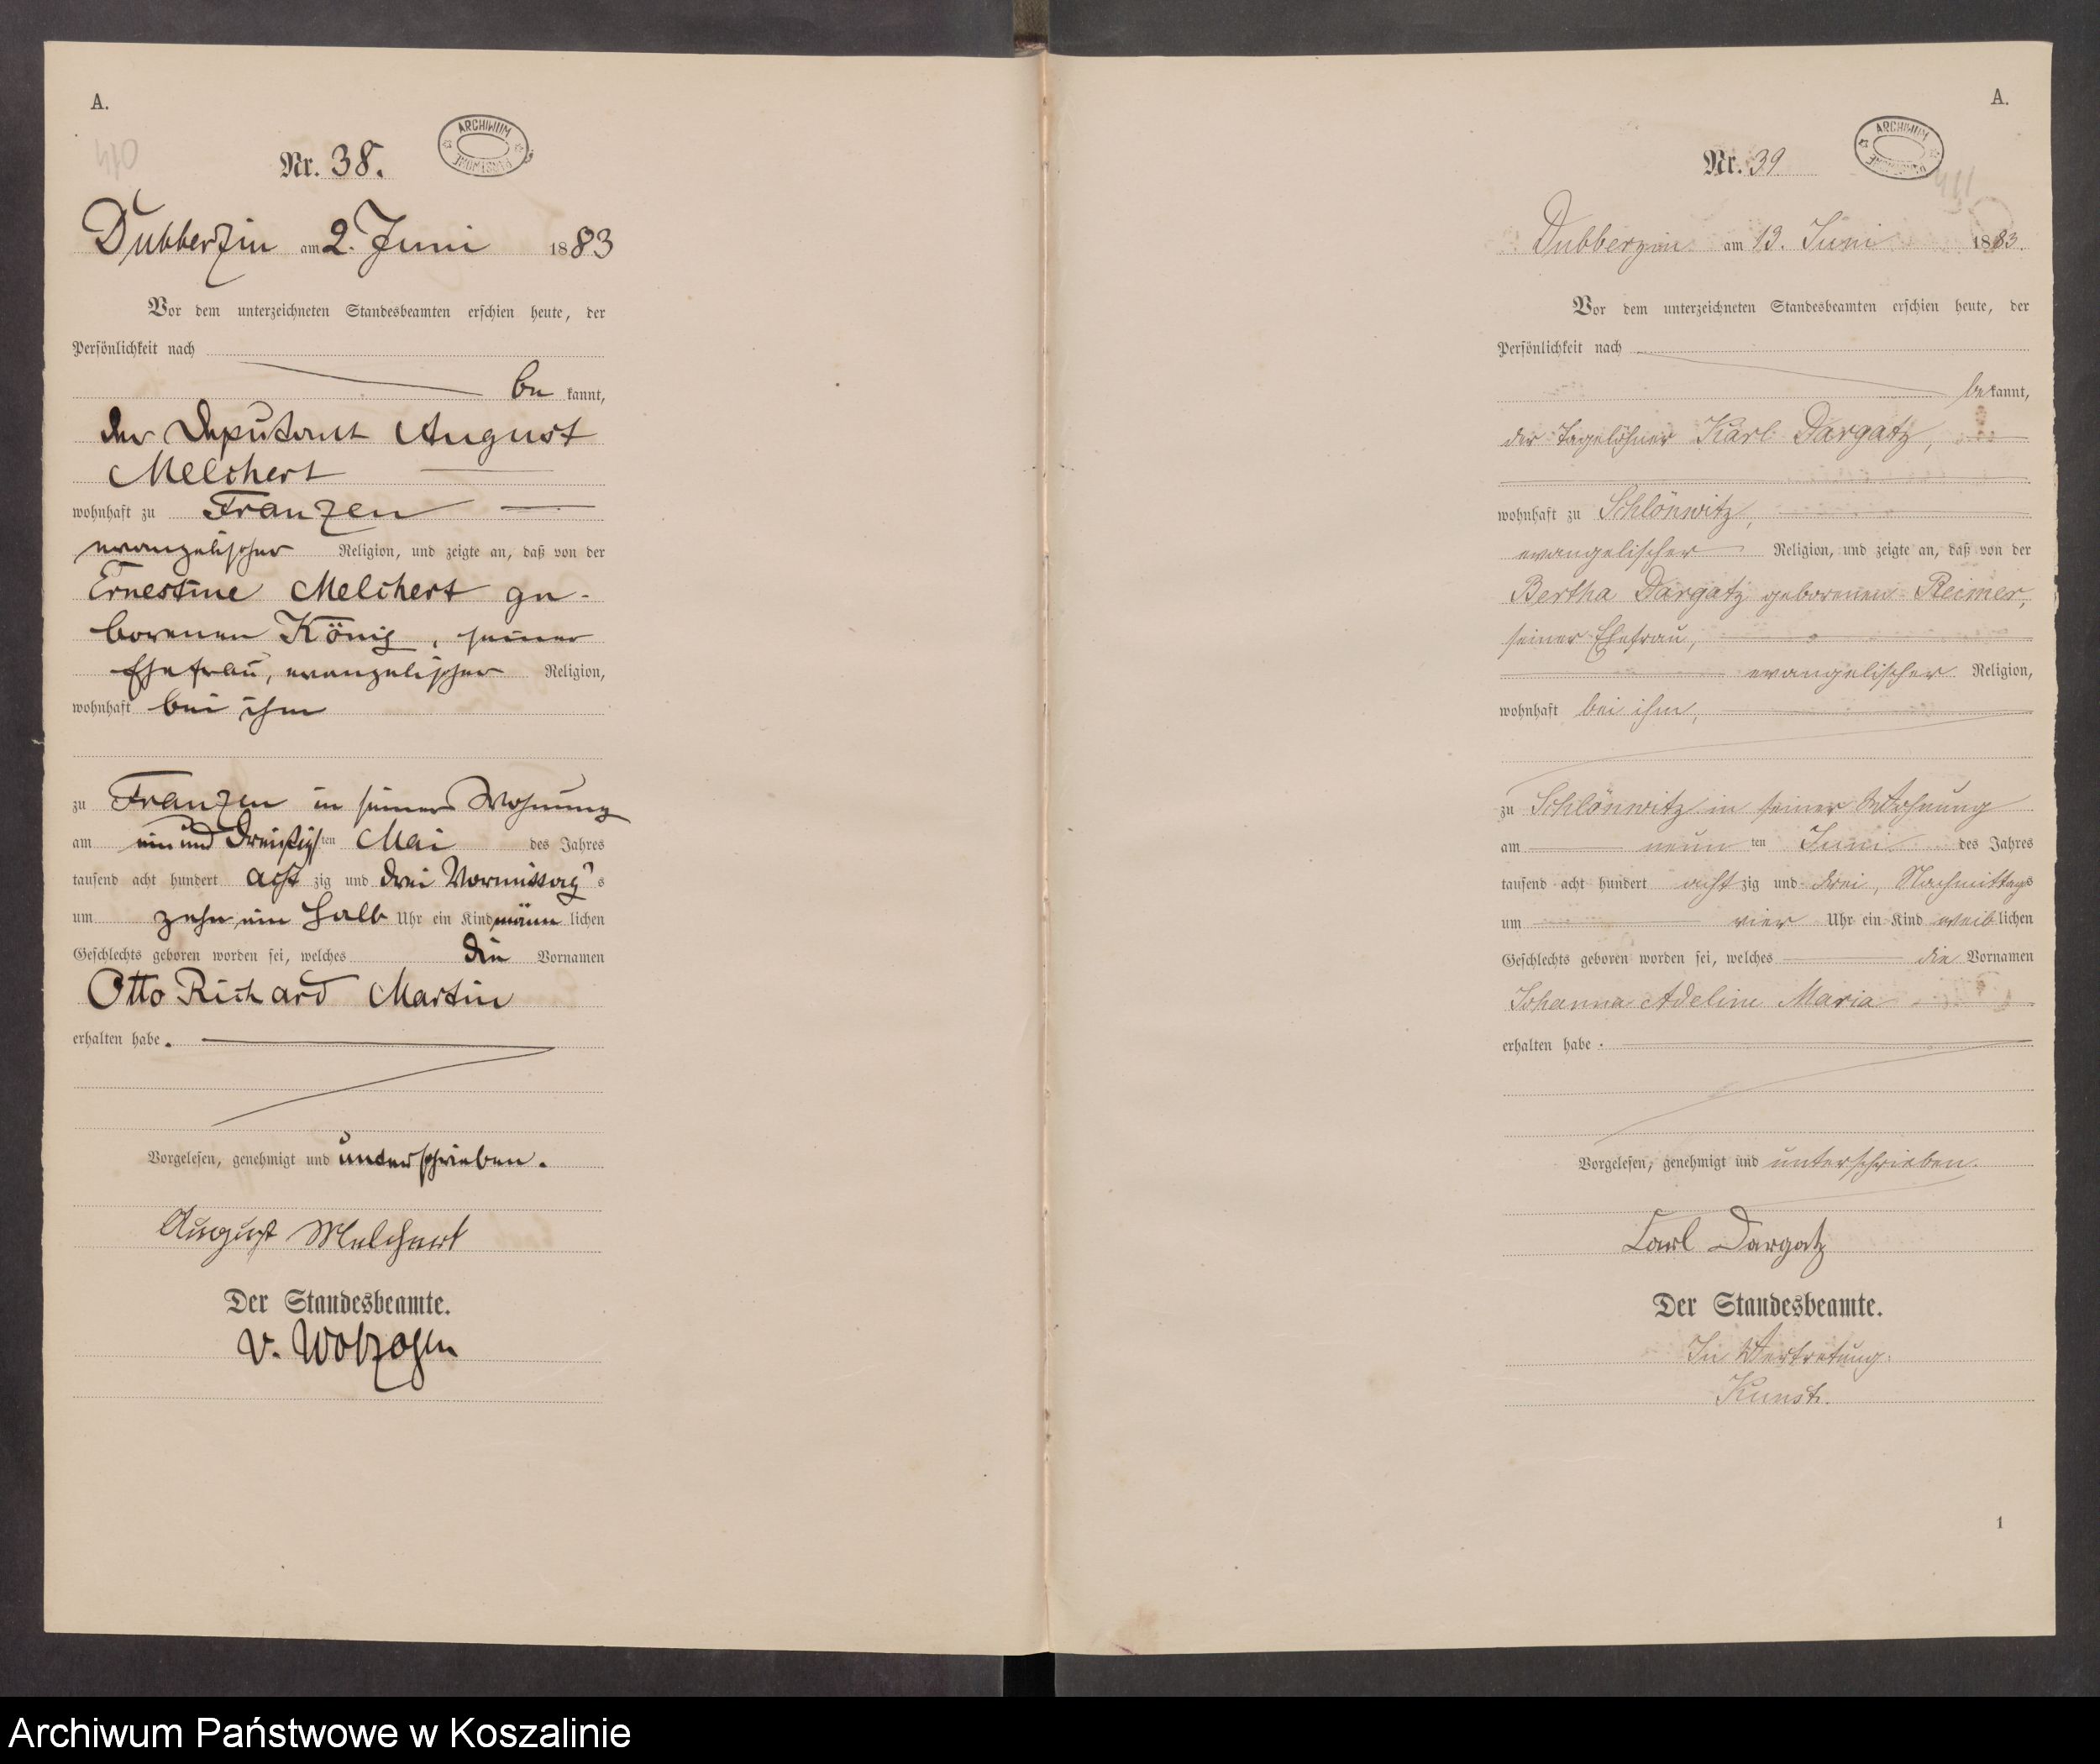 A.
ARCHIWUM
Nr. 38.
Dubberzin am 2. Juni 1883
Vor dem unterzeichneten Standesbeamten erschien heute, der
Persönlichkeit nach
be kannt,
der Deputant August
Melchert
wohnhaft zu Franzen
evangelischer Religion, und zeigte an, daß von der
Ernestine Melchert ge-
borenen König, seiner
Ehefrau, evangelischer Religion,
wohnhaft bei ihm
zu Franzen in seiner Wohnung
am ein und dreißigsten Mai des Jahres
tausend acht hundert acht zig und drei Vormittags
um zehn ein halb Uhr ein Kind männ lichen
Geschlechts geboren worden sei, welches die Vornamen
Otto Richard Martin
erhalten habe.
Vorgelesen, genehmigt und unterschrieben.
August Melchert
Der Standesbeamte.
v. Wolzogen
A.
ARCHIWUM
Nr. 39
Dubberzin am 13. Juni 1883.
Vor dem unterzeichneten Standesbeamten erschien heute, der
Persönlichkeit nach
be kannt,
der Tagelöhner Karl Dargatz,
wohnhaft zu Schlönwitz,
evangelischer Religion, und zeigte an, daß von der
Bertha Dargatz geborenen Reimer,
seiner Ehefrau,
evangelischer Religion,
wohnhaft bei ihm,
zu Schlönwitz in seiner Wohnung
am neun ten Juni des Jahres
tausend acht hundert acht zig und drei, Nachmittags
um vier Uhr ein Kind weib lichen
Geschlechts geboren worden sei, welches die Vornamen
Johanna Adeline Maria
erhalten habe.
Vorgelesen, genehmigt und unterschrieben.
Carl Dargatz
Der Standesbeamte.
In Vertretung:
Kunst.
1
Archiwum Państwowe w Koszalinie